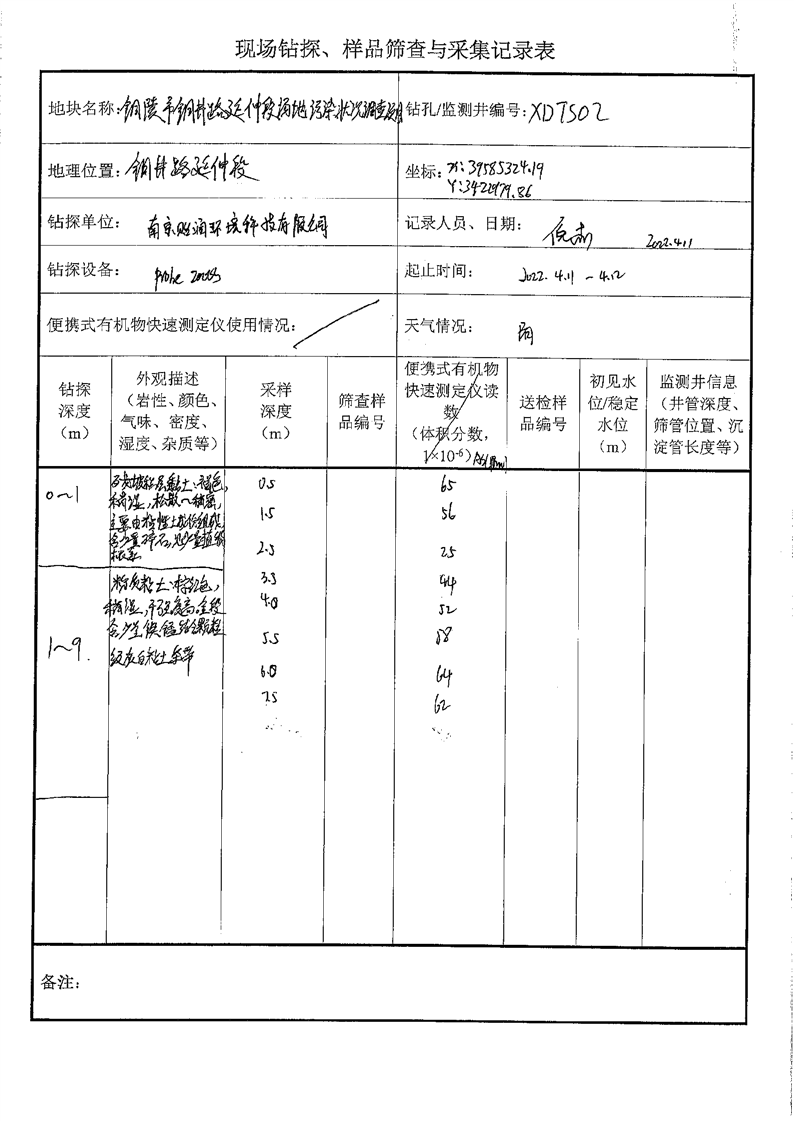 现场钻探、样品筛查与采集记录表
地块名称：铜陵市铜井路延伸段场地污染状况调查 钻孔/监测井编号：XDTS02
地理位置：铜井路延伸段 坐标：X：39585324.19
Y：3422979.86
钻探单位： 南京 环境科技有限公司 记录人员、日期： 2022.4.11
钻探设备： Probe 记时间： 2022. 4.11 ~ 4.12
便携式有机物快速测定仪使用情况： 天气情况： 雨
钻探
深度
（m）
外观描述
（岩性、颜色、
气味、密度、
湿度、杂质等）
采样
深度
（m）
筛查样
品编号
便携式有机物
快速测定仪读
数
（体积分数，
1×10⁻⁶）
送检样
品编号
初见水
位/稳定
水位
（m）
监测井信息
（井管深度、
筛管位置、沉
淀管长度等）
0~1
粘土：褐色，
稍湿，松散~稍密，
主要由粘性土 组成
含少量碎石，
根系
1~9.
粉质粘土：棕红色，
稍湿，干强度高，全段
含少量铁锰 颗粒
灰白粘土条带
0.5 65
1.5 56
2.5 25
3.5 44
4.0 52
5.5 58
6.0 64
7.5 62
备注：